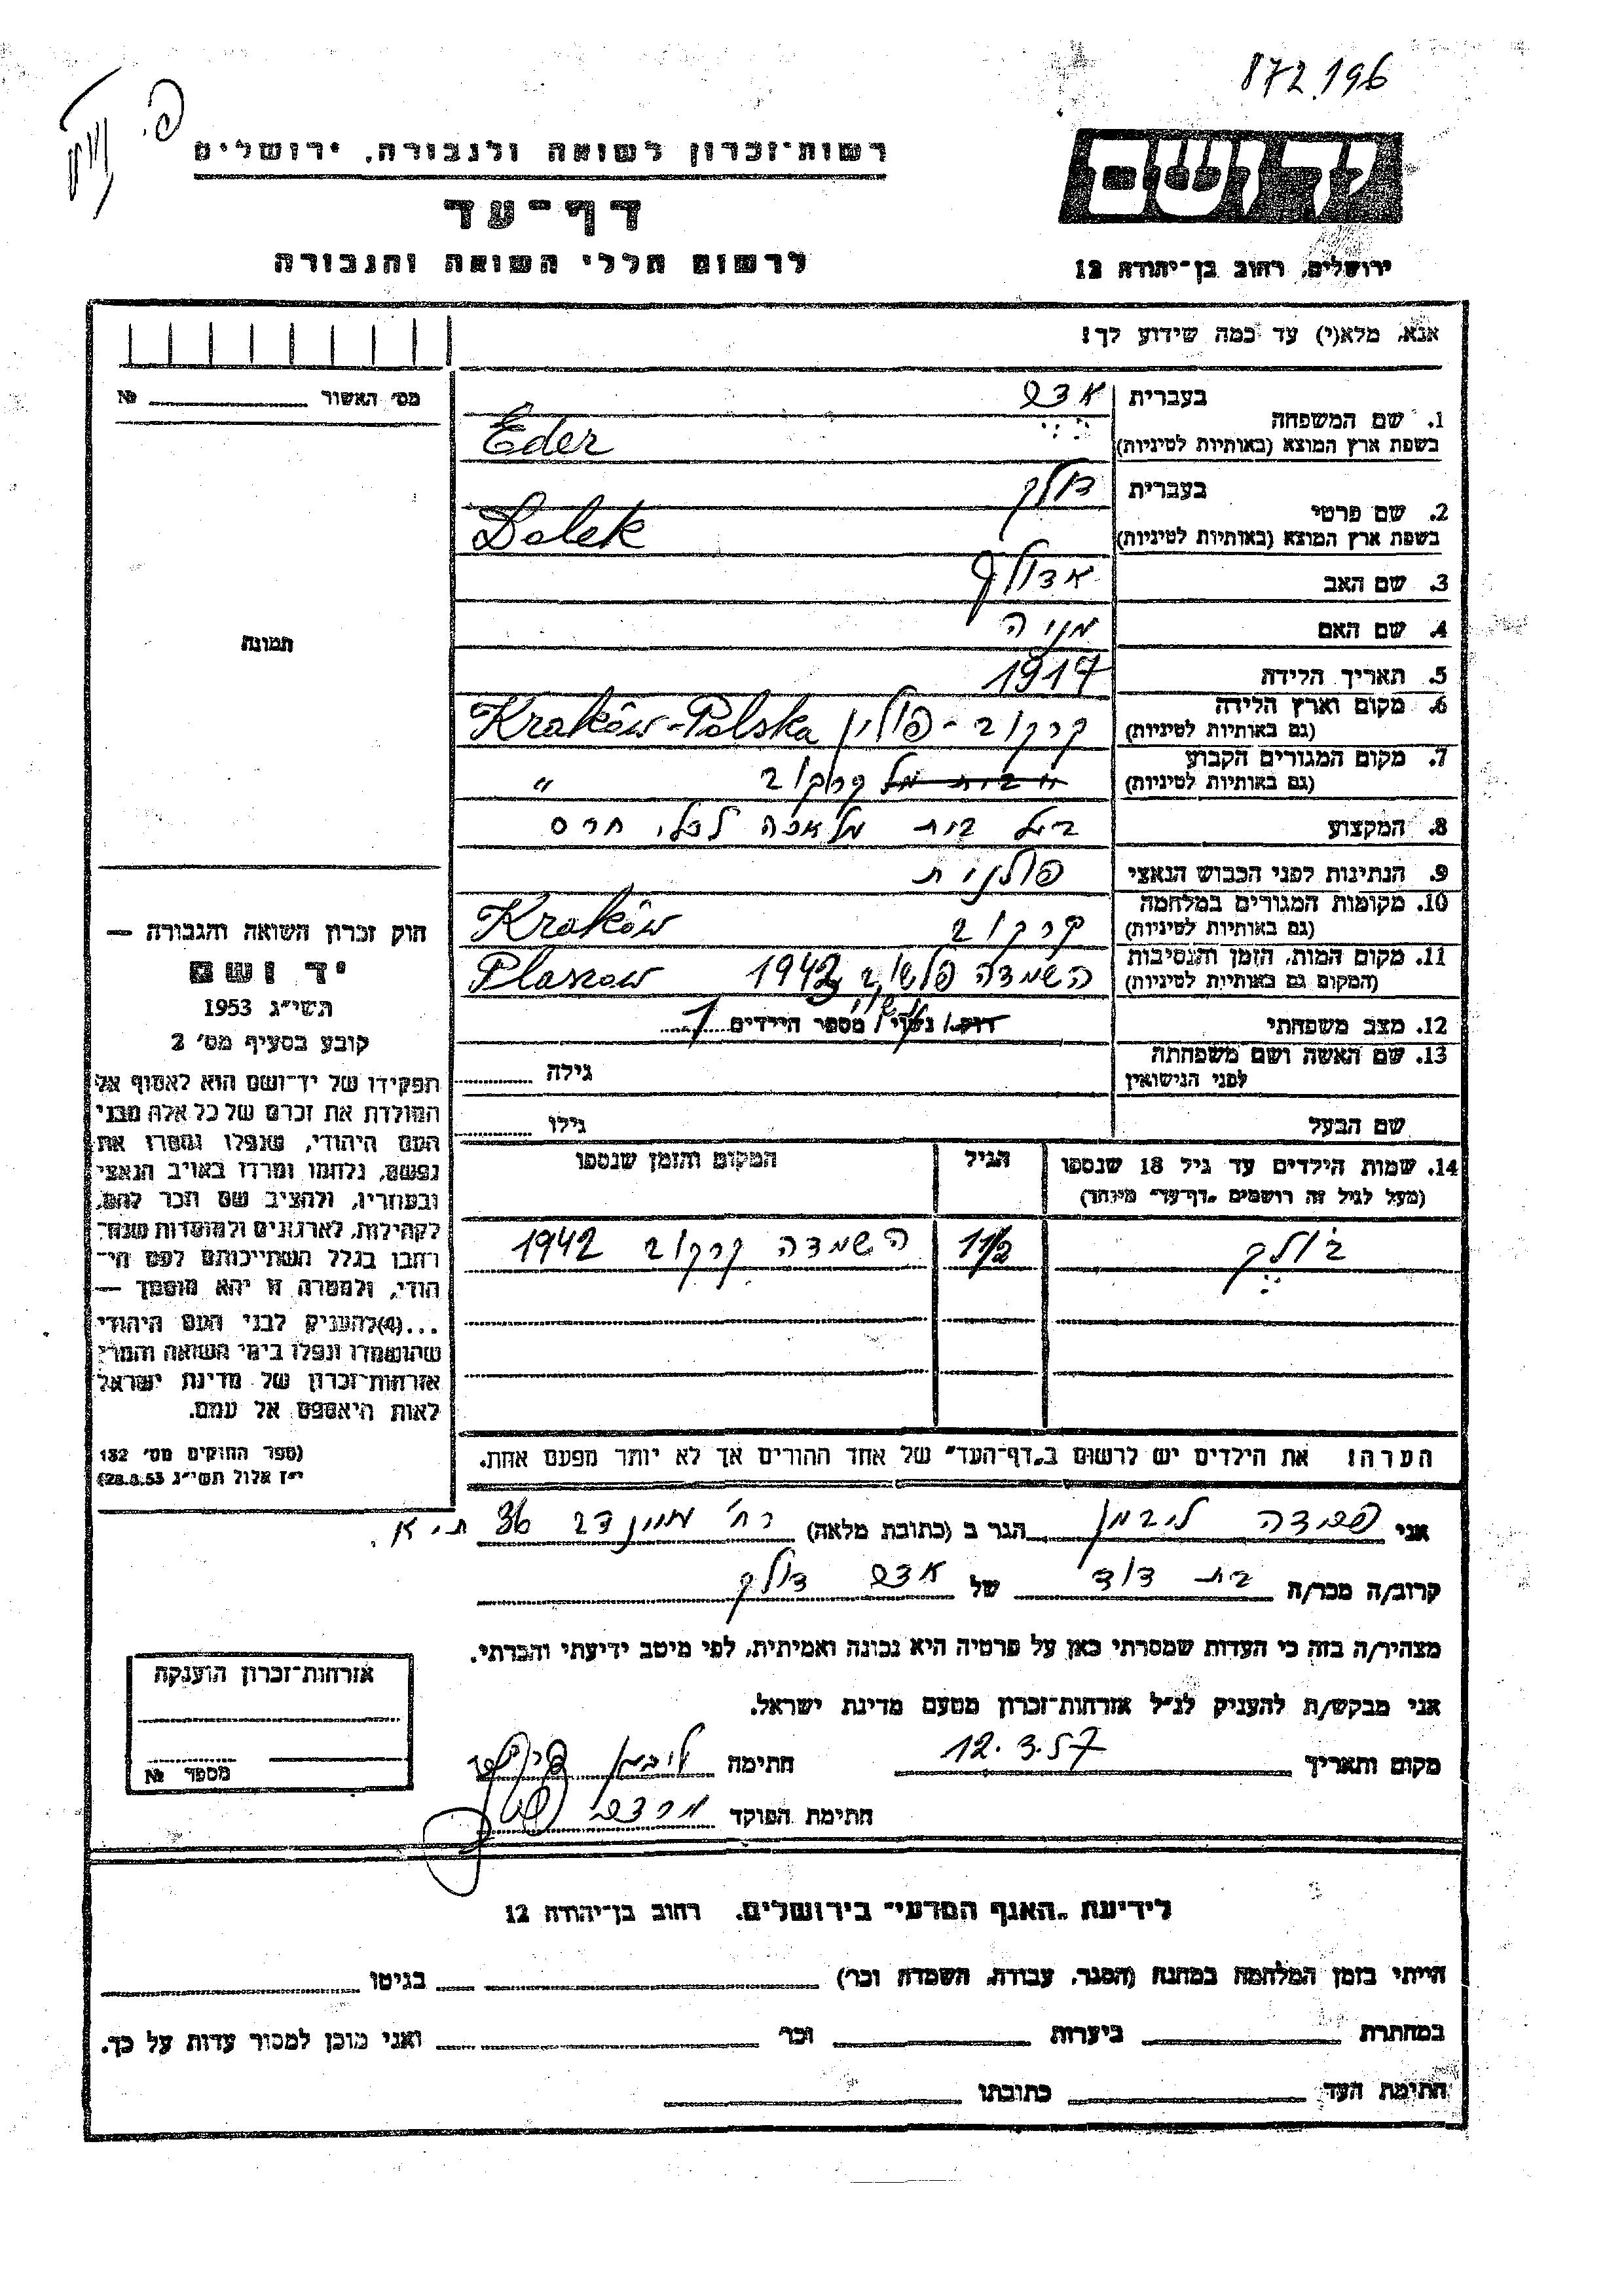 872.196
רשות־זכרון לשואה ולגבורה, ירושלים
דף־עד
לרשום חללי השואה והגבורה
ירושלים, רחוב בן־יהודה 12
אנא, מלא(י) עד כמה שידוע לך!
מס׳ האשור № 
1. שם המשפחה בעברית אדר
בשפת ארץ המוצא (באותיות לטיניות) Eder
2. שם פרטי בעברית דולק
בשפת ארץ המוצא (באותיות לטיניות) Dolek
3. שם האב אדולף
4. שם האם מניה
תמונה
5. תאריך הלידה 1917
6. מקום וארץ הלידה (גם באותיות לטיניות) קרקוב - פולין Kraków-Polska
7. מקום המגורים הקבוע (גם באותיות לטיניות) קרקוב "
8. המקצוע בעל בית מלאכה לכלי חרס
9. הנתינות לפני הכבוש הנאצי פולנית
10. מקומות המגורים במלחמה (גם באותיות לטיניות) קרקוב Kraków
11. מקום המות, הזמן והנסיבות (המקום גם באותיות לטיניות) השמדה פלשוב 1943 Plaszow
12. מצב משפחתי רוק/ נשוי/ מספר הילדים 1
13. שם האשה ושם משפחתה לפני הנישואין גילה
שם הבעל גילו
14. שמות הילדים עד גיל 18 שנספו הגיל המקום והזמן שנספו
(מעל לגיל זה רושמים "דף־עד" מיוחד)
11/2 השמדה קרקוב 1942
הערה: את הילדים יש לרשום ב"דף־העד" של אחד ההורים אך לא יותר מפעם אחת.
חוק זכרון השואה והגבורה —
יד ושם
תשי״ג 1953
קובע בסעיף מס׳ 2
תפקידו של יד־ושם הוא לאסוף אל
המולדת את זכרם של כל אלה מבני
העם היהודי, שנפלו ומסרו את
נפשם, נלחמו ומרדו באויב הנאצי
ובעוזריו, ולהציב שם וזכר להם,
לקהילות, לארגונים ולמוסדות שנח־
רבו בגלל השתייכותם לעם הי־
הודי, ולמטרה זו יהא מוסמך —
...(4)להעניק לבני העם היהודי
שהושמדו ונפלו בימי השואה והמרי
אזרחות־זכרון של מדינת ישראל
לאות היאספם אל עמם.
(ספר החוקים מס׳ 132
י״ז אלול תשי״ג 28.8.53)
אני ליבמן הגר ב (כתובת מלאה) רח׳ 36 ת.א.
קרוב/ה מכר/ה בת דוד של אדר דולק
מצהיר/ה בזה כי העדות שמסרתי כאן על פרטיה היא נכונה ואמיתית, לפי מיטב ידיעתי והכרתי.
אני מבקש/ת להעניק לנ״ל אזרחות־זכרון מטעם מדינת ישראל.
מקום ותאריך 12.3.57 חתימה ליבמן
חתימת הפוקד
אזרחות־זכרון הוענקה
מספר №
לידיעת "האגף המדעי" בירושלים, רחוב בן־יהודה 12
הייתי בזמן המלחמה במחנה (הסגר, עבודה, השמדה וכו׳) בגיטו
במחתרת ביערות וכו׳ ואני מוכן למסור עדות על כך.
חתימת העד כתובתו